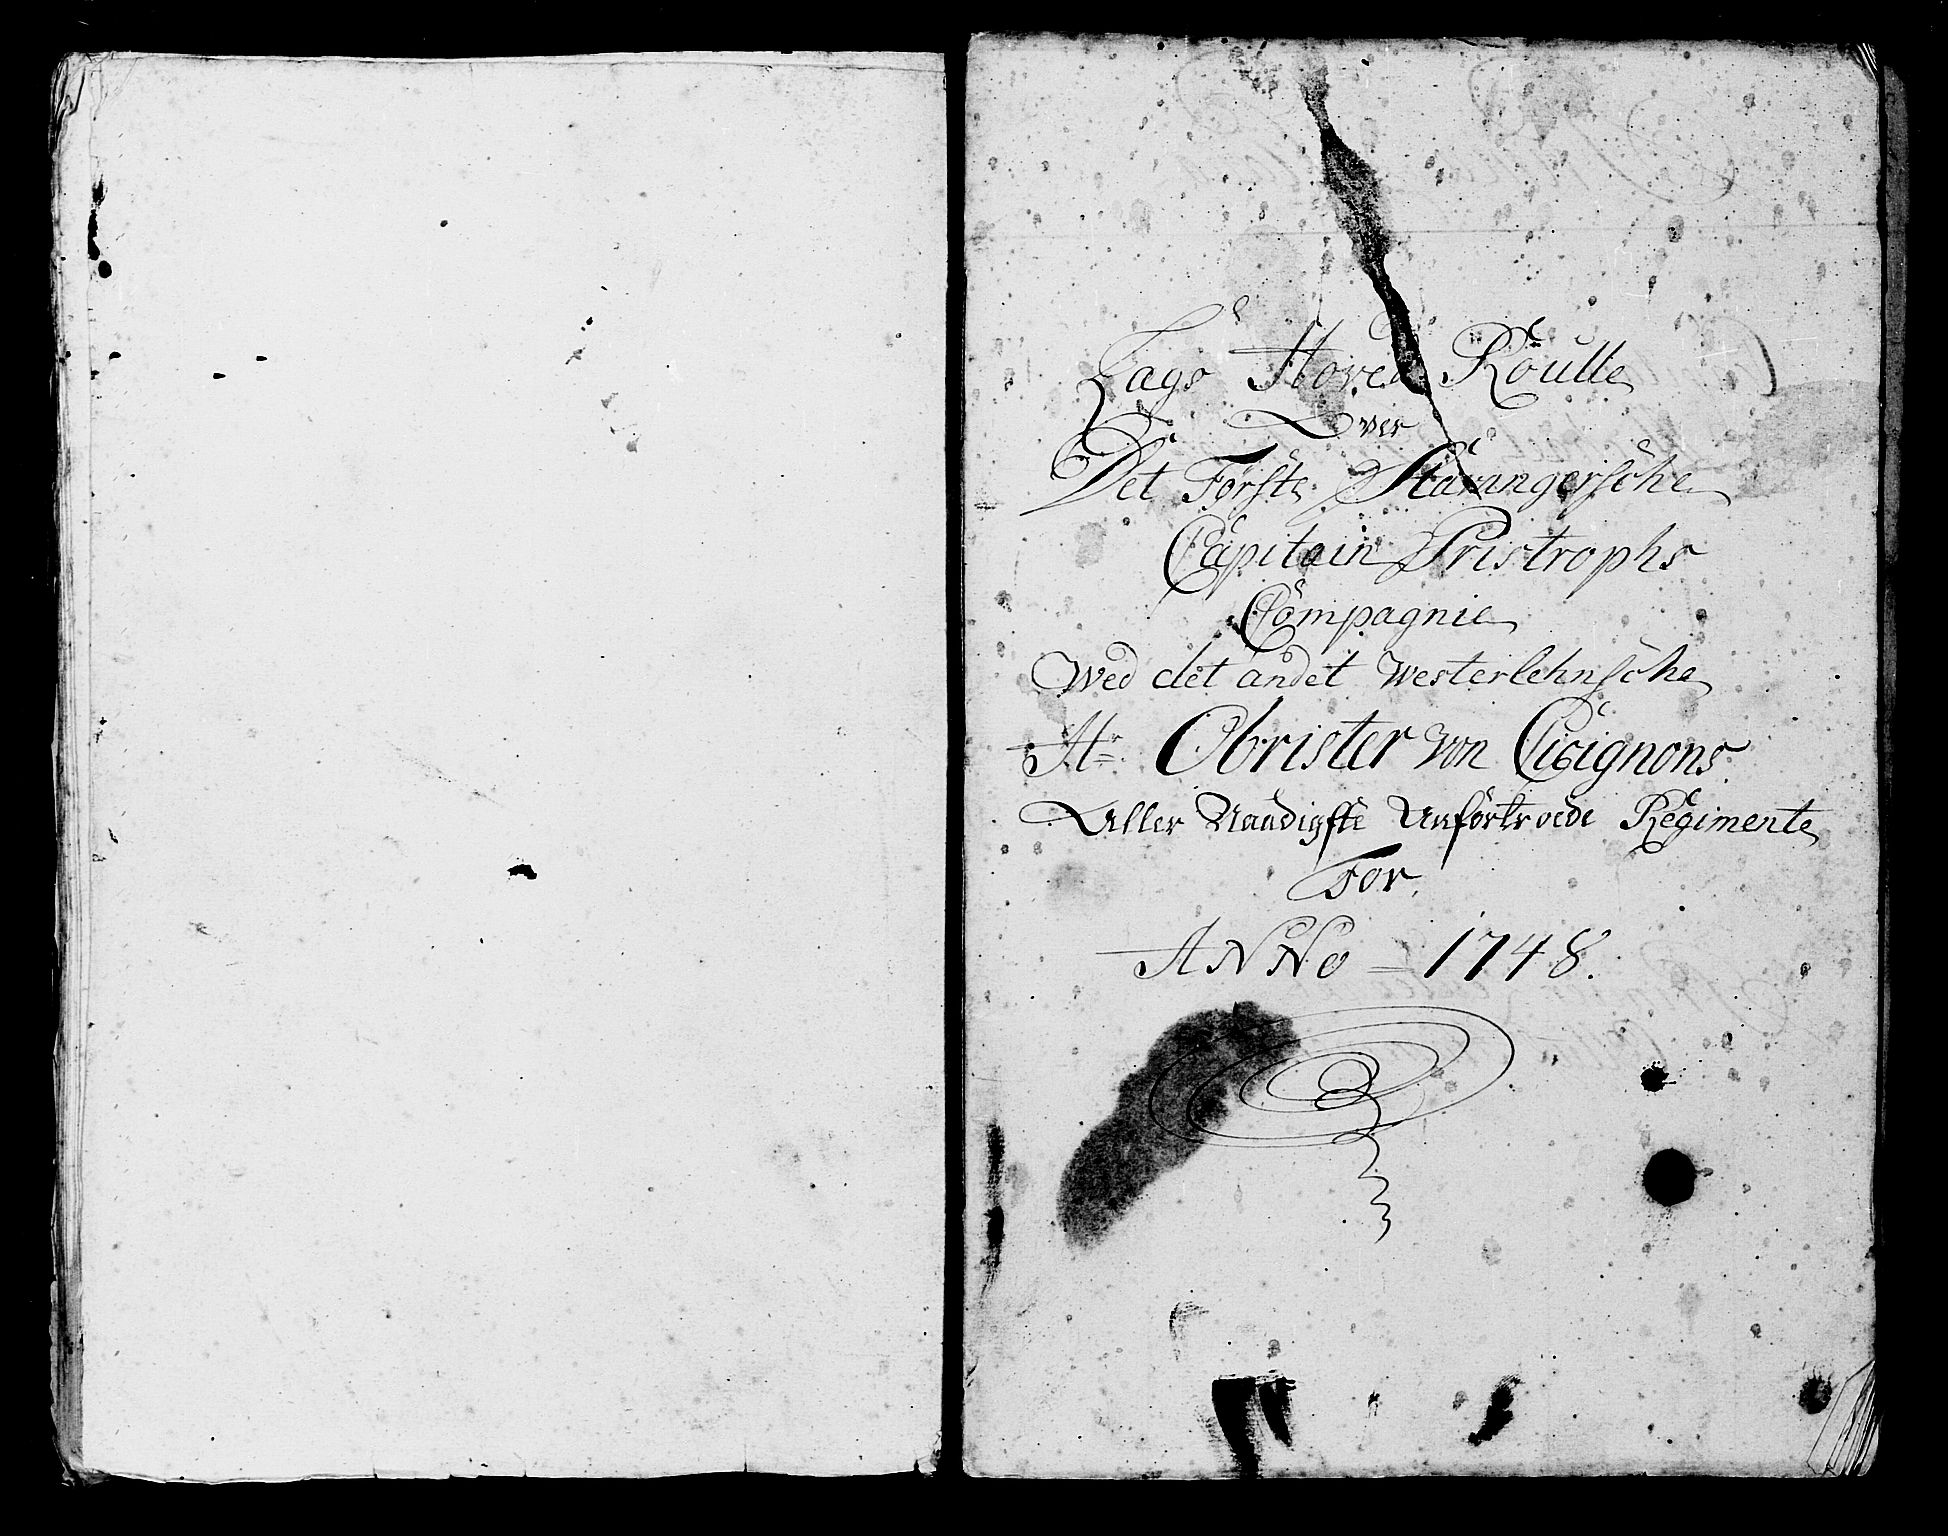 Lags Hoved Roulle
Over
Det Førster Stavangersche
Capitain Pristrophs
Compagnie
Wed det andet Westerlehnsche
Hr Obrister von Cicignons
Aller Naadigste Anførtroede Regimente
For
ANNo = 1748.